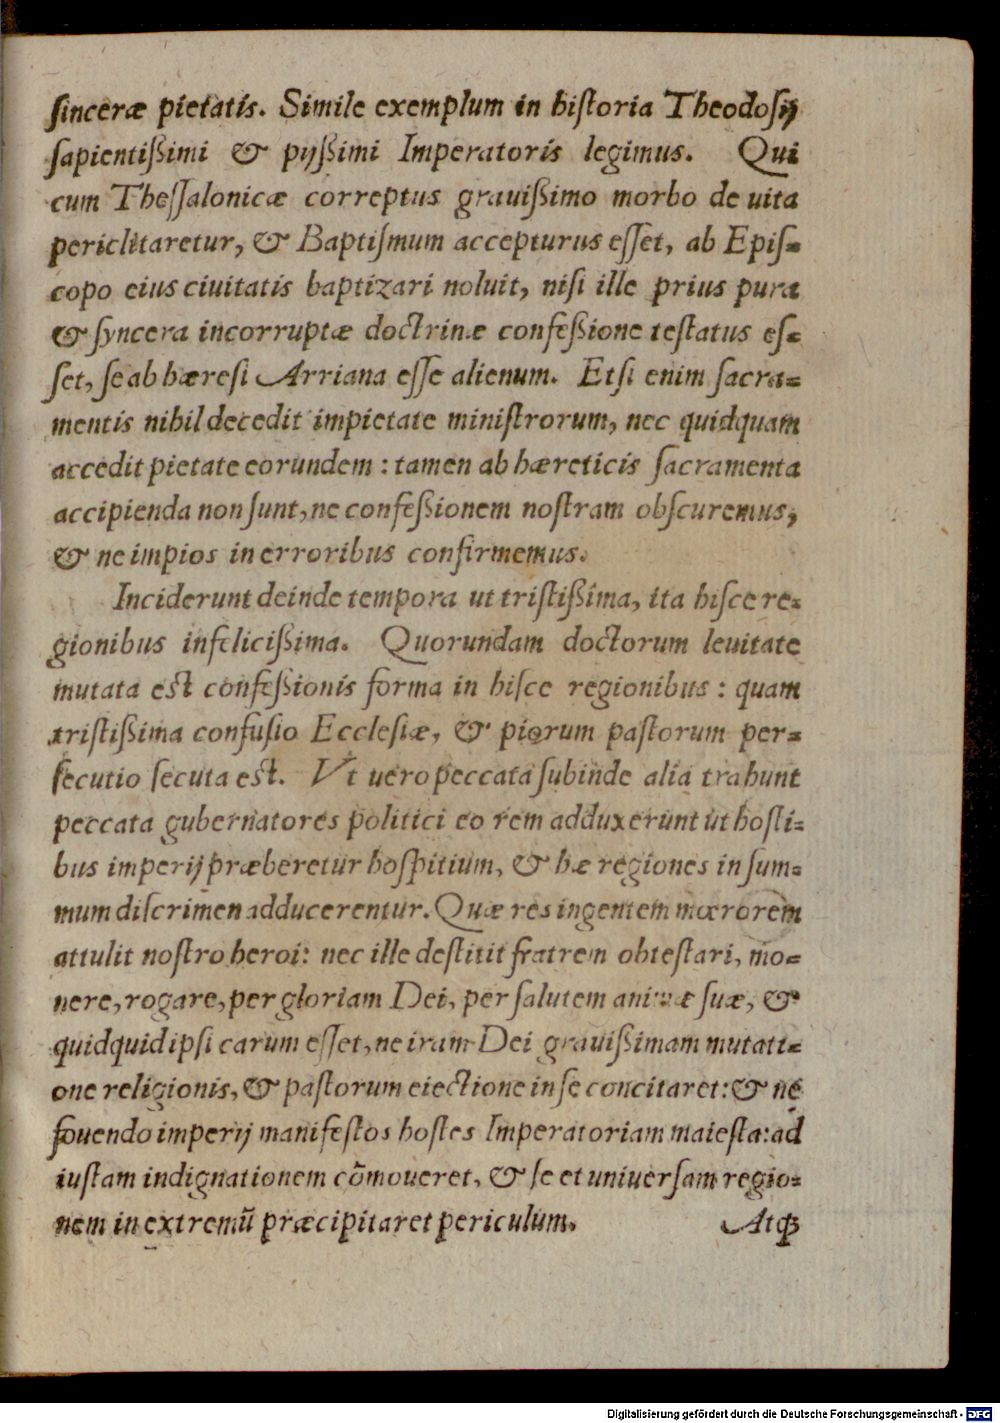 ſinceræ pietatis. Simile exemplum in hiſtoria Theodoſij
ſapientiſsimi & pijſsimi Imperatoris legimus. Qui
cum Theſſalonicæ correptus grauiſsimo morbo de uita
periclitaretur, & Baptiſmum accepturus eſſet, ab Epiſ=
copo eius ciuitatis baptizari noluit, niſi ille prius pura
& ſyncera incorruptæ doctrinæ confeſsione teſtatus eſ=
ſet, ſe ab hæreſi Arriana eſſe alienum. Etſi enim ſacra=
mentis nihil decedit impietate miniſtrorum, nec quidquam
accedit pietate eorundem : tamen ab hæreticis ſacramenta
accipienda non ſunt, ne confeſsionem noſtram obſcuremus,
& ne impios in erroribus confirmemus.
Inciderunt deinde tempora ut triſtiſsima, ita hiſce re=
gionibus infeliciſsima. Quorundam doctorum leuitate
mutata eſt confeſsionis forma in hiſce regionibus : quam
triſtiſsima confuſio Eccleſiæ, & piorum paſtorum per=
ſecutio ſecuta eſt. Vt uero peccata ſubinde alia trahunt
peccata gubernatores politici eo rem adduxerunt ut hoſti=
bus imperij præberetur hoſpitium, & hæ regiones in ſum=
mum diſcrimen adducerentur. Quæ res ingentem mœrorem
attulit noſtro heroi: nec ille deſtitit fratrem obteſtari, mo=
nere, rogare, per gloriam Dei, per ſalutem animæ ſuæ, &
quidquid ipſi carum eſſet, ne iram Dei grauiſsimam mutati=
one religionis, & paſtorum eiectione in ſe concitaret: & ne
fouendo imperij manifeſtos hoſtes Imperatoriam maieſta: ad
iuſtam indignationem cõmoueret, & ſe et uniuerſam regio=
nem in extremũ præcipitaret periculum.
Atqꝫ
Digitalisierung gefördert durch die Deutsche Forschungsgemeinschaft - DFG